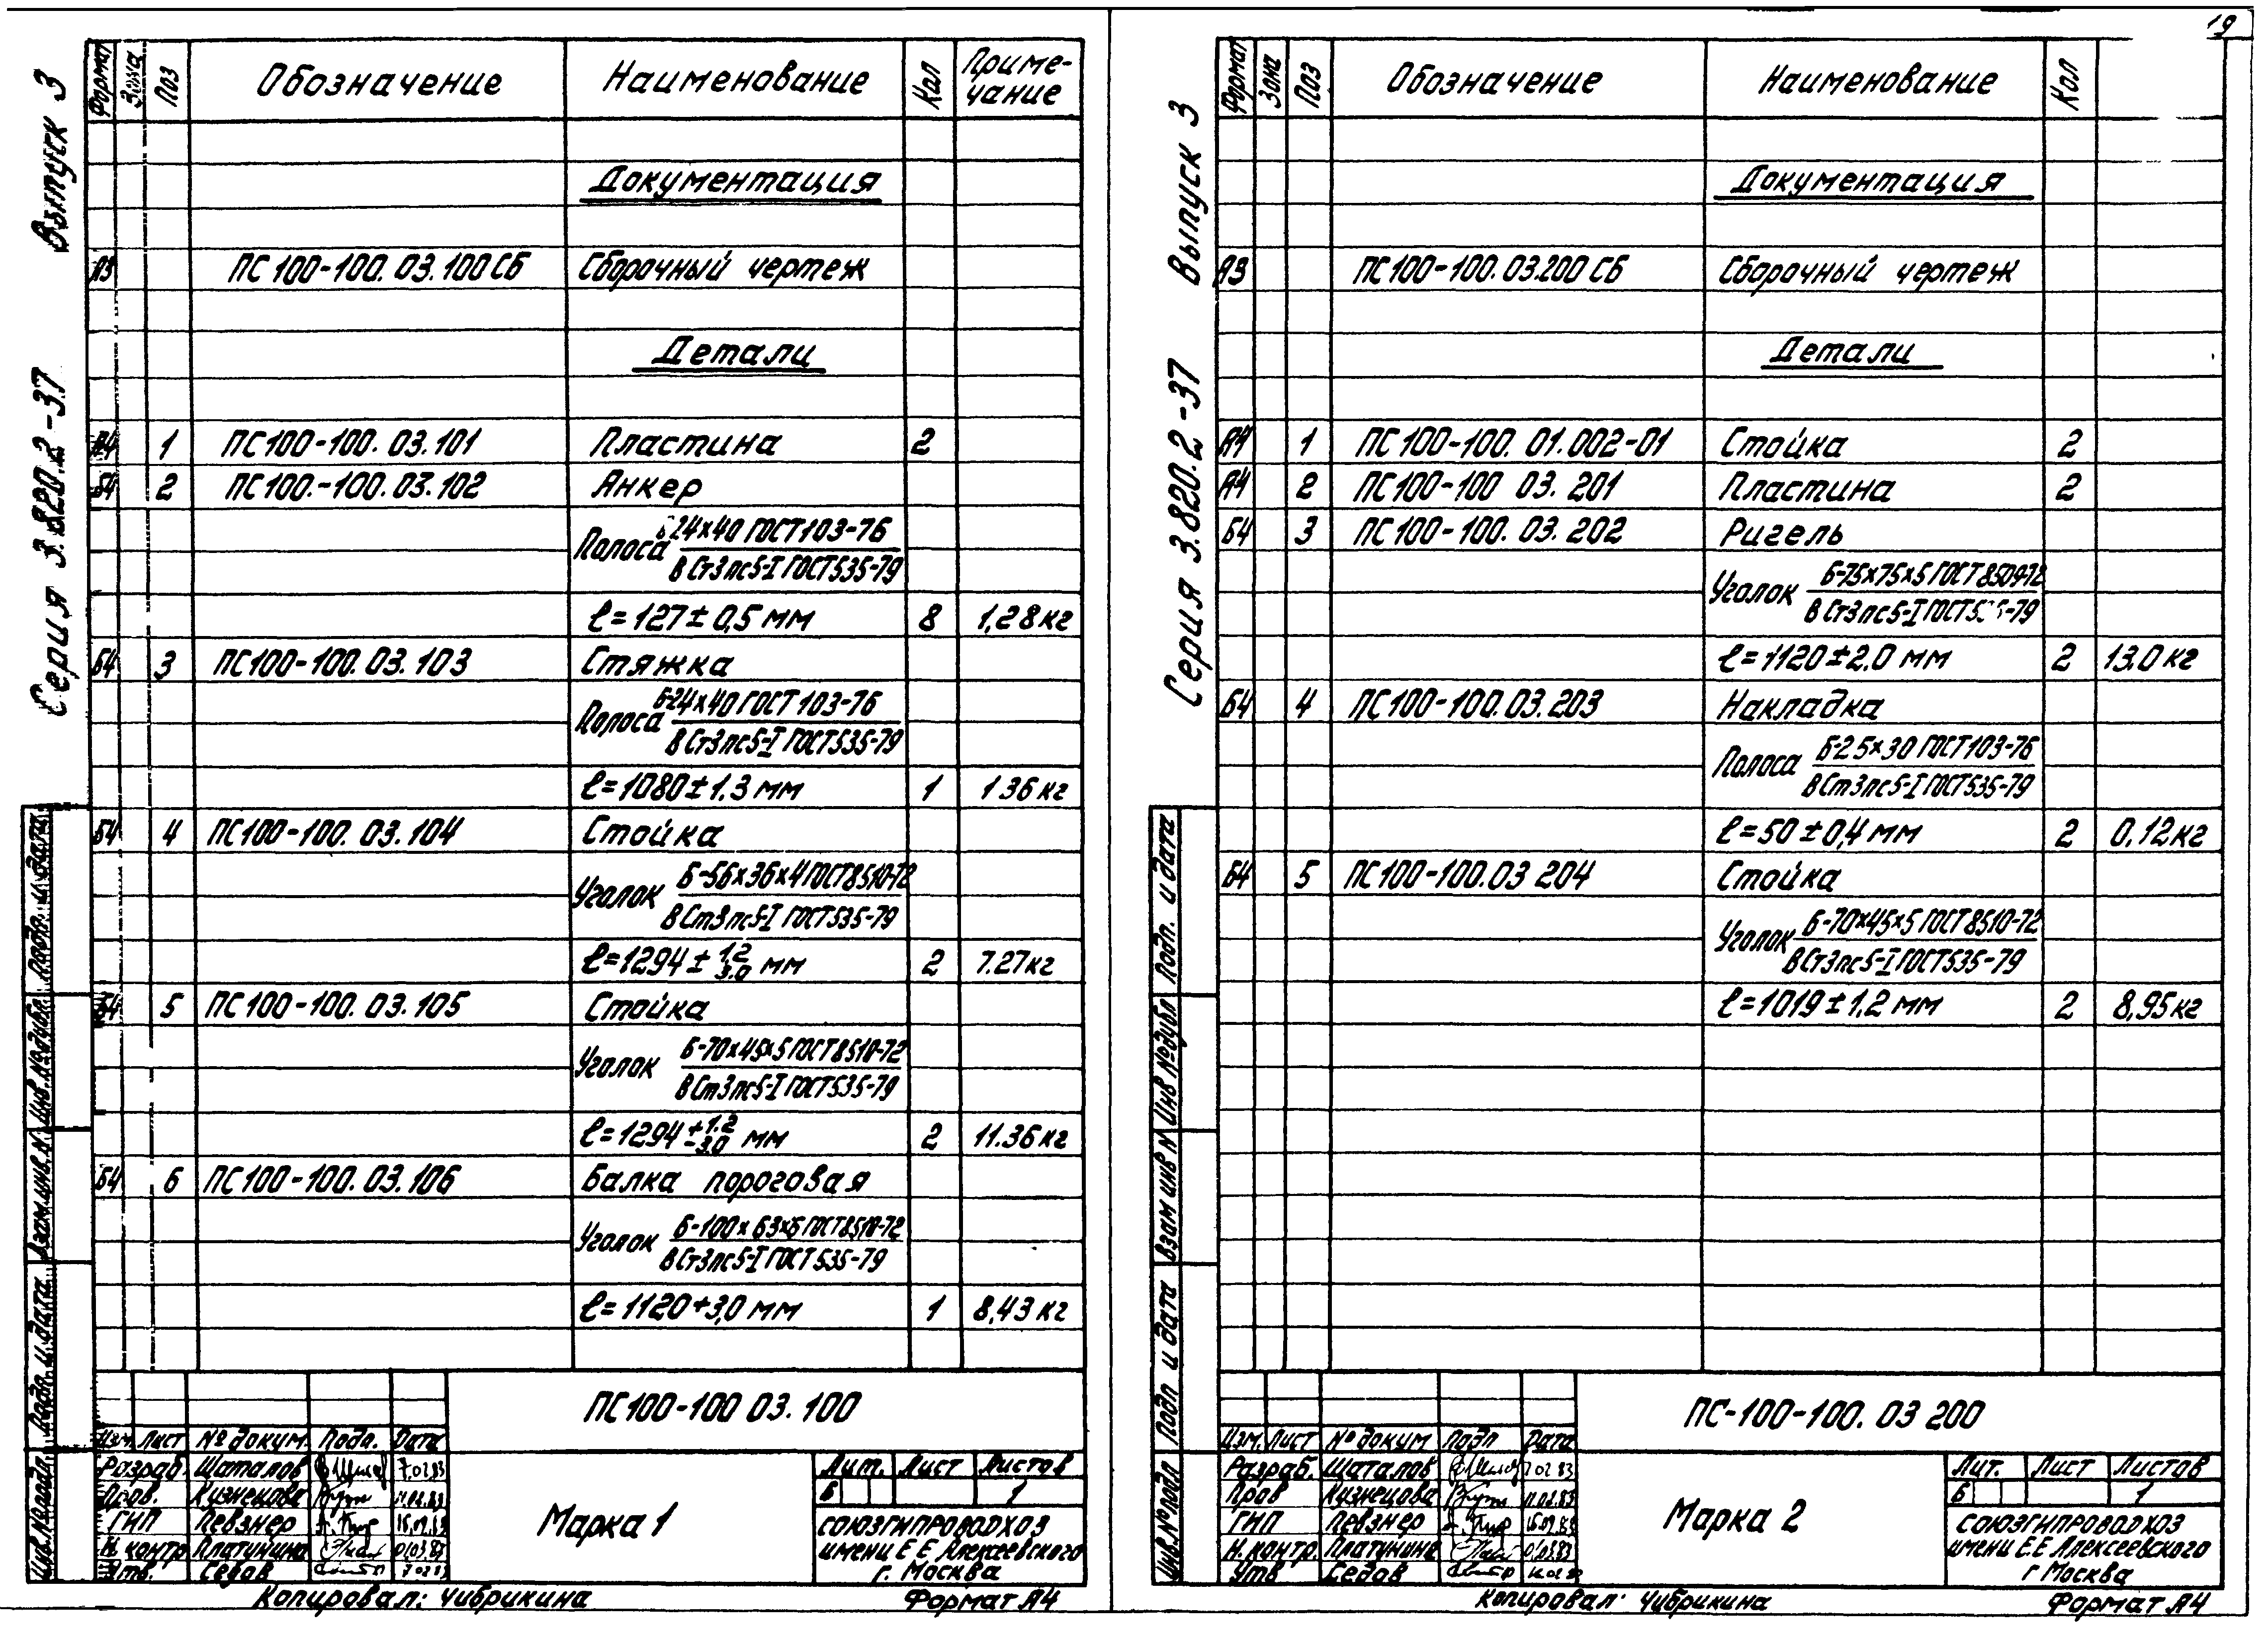 19
Серия 3.820.2-37 Выпуск 3
Формат Зона Поз Обозначение Наименование Кол Приме-
чание
Документация
А3 ПС100-100.03.100СБ Сборочный чертеж
Детали
1 ПС100-100.03.101 Пластина 2
Б4 2 ПС100.-100.03.102 Анкер
Полоса 24х40 ГОСТ103-76
ВСт3пс5-I ГОСТ535-79
ℓ=127±0,5 мм 8 1,28кг
Б4 3 ПС100-100.03.103 Стяжка
Полоса Б-24х40 ГОСТ 103-76
ВСт3пс5-I ГОСТ535-79
ℓ=1080±1.3 мм 1 1 36кг
Б4 4 ПС100-100.03.104 Стойка
Уголок Б-56х36х4 ГОСТ8510-72
ВСт3пс5-I ГОСТ535-79
ℓ=1294± 1.2 3.0 мм 2 7.27кг
Б4 5 ПС100-100.03.105 Стойка
Уголок Б-70х45х5 ГОСТ8510-72
ВСт3пс5-I ГОСТ535-79
ℓ=1294 +1.2 -3.0 мм 2 11.36кг
Б4 6 ПС100-100.03.106 Балка пороговая
Уголок Б-100х63х6 ГОСТ8510-72
ВСт3пс5-I ГОСТ535-79
ℓ=1120+3,0 мм 1 8,43кг
ПС100-100 03.100
Изм. Лист № докум. Подп. Дата
Разраб. Шаталов 7.02.83
Пров. Кузнецова 11.02.83
ГИП Певзнер
Н. контр Платунина 01.03.83
Утв. Седов
Марка 1
Лит. Лист Листов
Б 1
СОЮЗГИПРОВОДХОЗ
имени Е Е Алексеевского
г. Москва
Инв.№подл. Подп. и дата Взам.инв.№ Инв.№дубл. Подп. и дата
Копировал: Чибрикина Формат А4
Серия 3.820.2-37 Выпуск 3
Формат Зона Поз Обозначение Наименование Кол
Документация
А3 ПС100-100.03.200 СБ Сборочный чертеж
Детали
А4 1 ПС100-100.01.002-01 Стойка 2
А4 2 ПС100-100 03.201 Пластина 2
Б4 3 ПС100-100.03.202 Ригель
Уголок Б-75х75х5 ГОСТ8509-72
ВСт3пс5-I ГОСТ535-79
ℓ=1120±2.0 мм 2 13.0кг
Б4 4 ПС100-100.03.203 Накладка
Полоса Б-2.5х30 ГОСТ103-76
ВСт3пс5-I ГОСТ535-79
ℓ=50±0,4 мм 2 0,12кг
Б4 5 ПС100-100.03 204 Стойка
Уголок Б-70х45х5 ГОСТ8510-72
ВСт3пс5-I ГОСТ535-79
ℓ=1019±1,2 мм 2 8,95кг
ПС-100-100.03 200
Изм. Лист № докум Подп Дата
Разраб. Шаталов 7 02 83
Пров Кузнецова 11.02.83
ГИП Певзнер
Н. контр. Платунина 01.03.83
Утв Седов
Марка 2
Лит. Лист Листов
Б 1
СОЮЗГИПРОВОДХОЗ
имени Е.Е Алексеевского
г Москва
Инв.№подл Подп и дата Взам инв № Инв №дубл Подп. и дата
Копировал: Чибрикина Формат А4